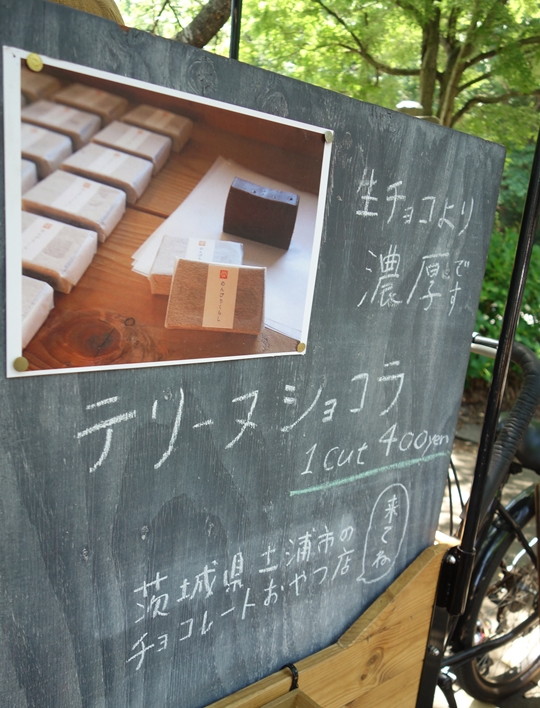 生チョコより
濃厚です。
テリーヌショコラ
1cut 400yen
来てね
茨城県土浦市の
チョコレートおやつ店